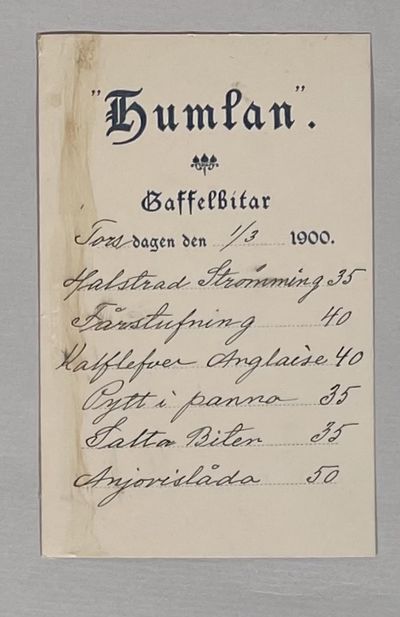 "Humlan".
Gaffelbitar
Torsdagen den 1/3 1900.
Halstrad Strömming 35
Fårstufning 40
Kalflefver Anglaise 40
Pytt i panna 35
Salta Biten 35
Anjovislåda 50